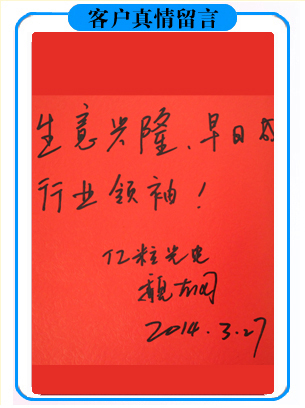 客户真情留言
生意兴隆、早日成
行业领袖！
亿粒光电
2014.3.27